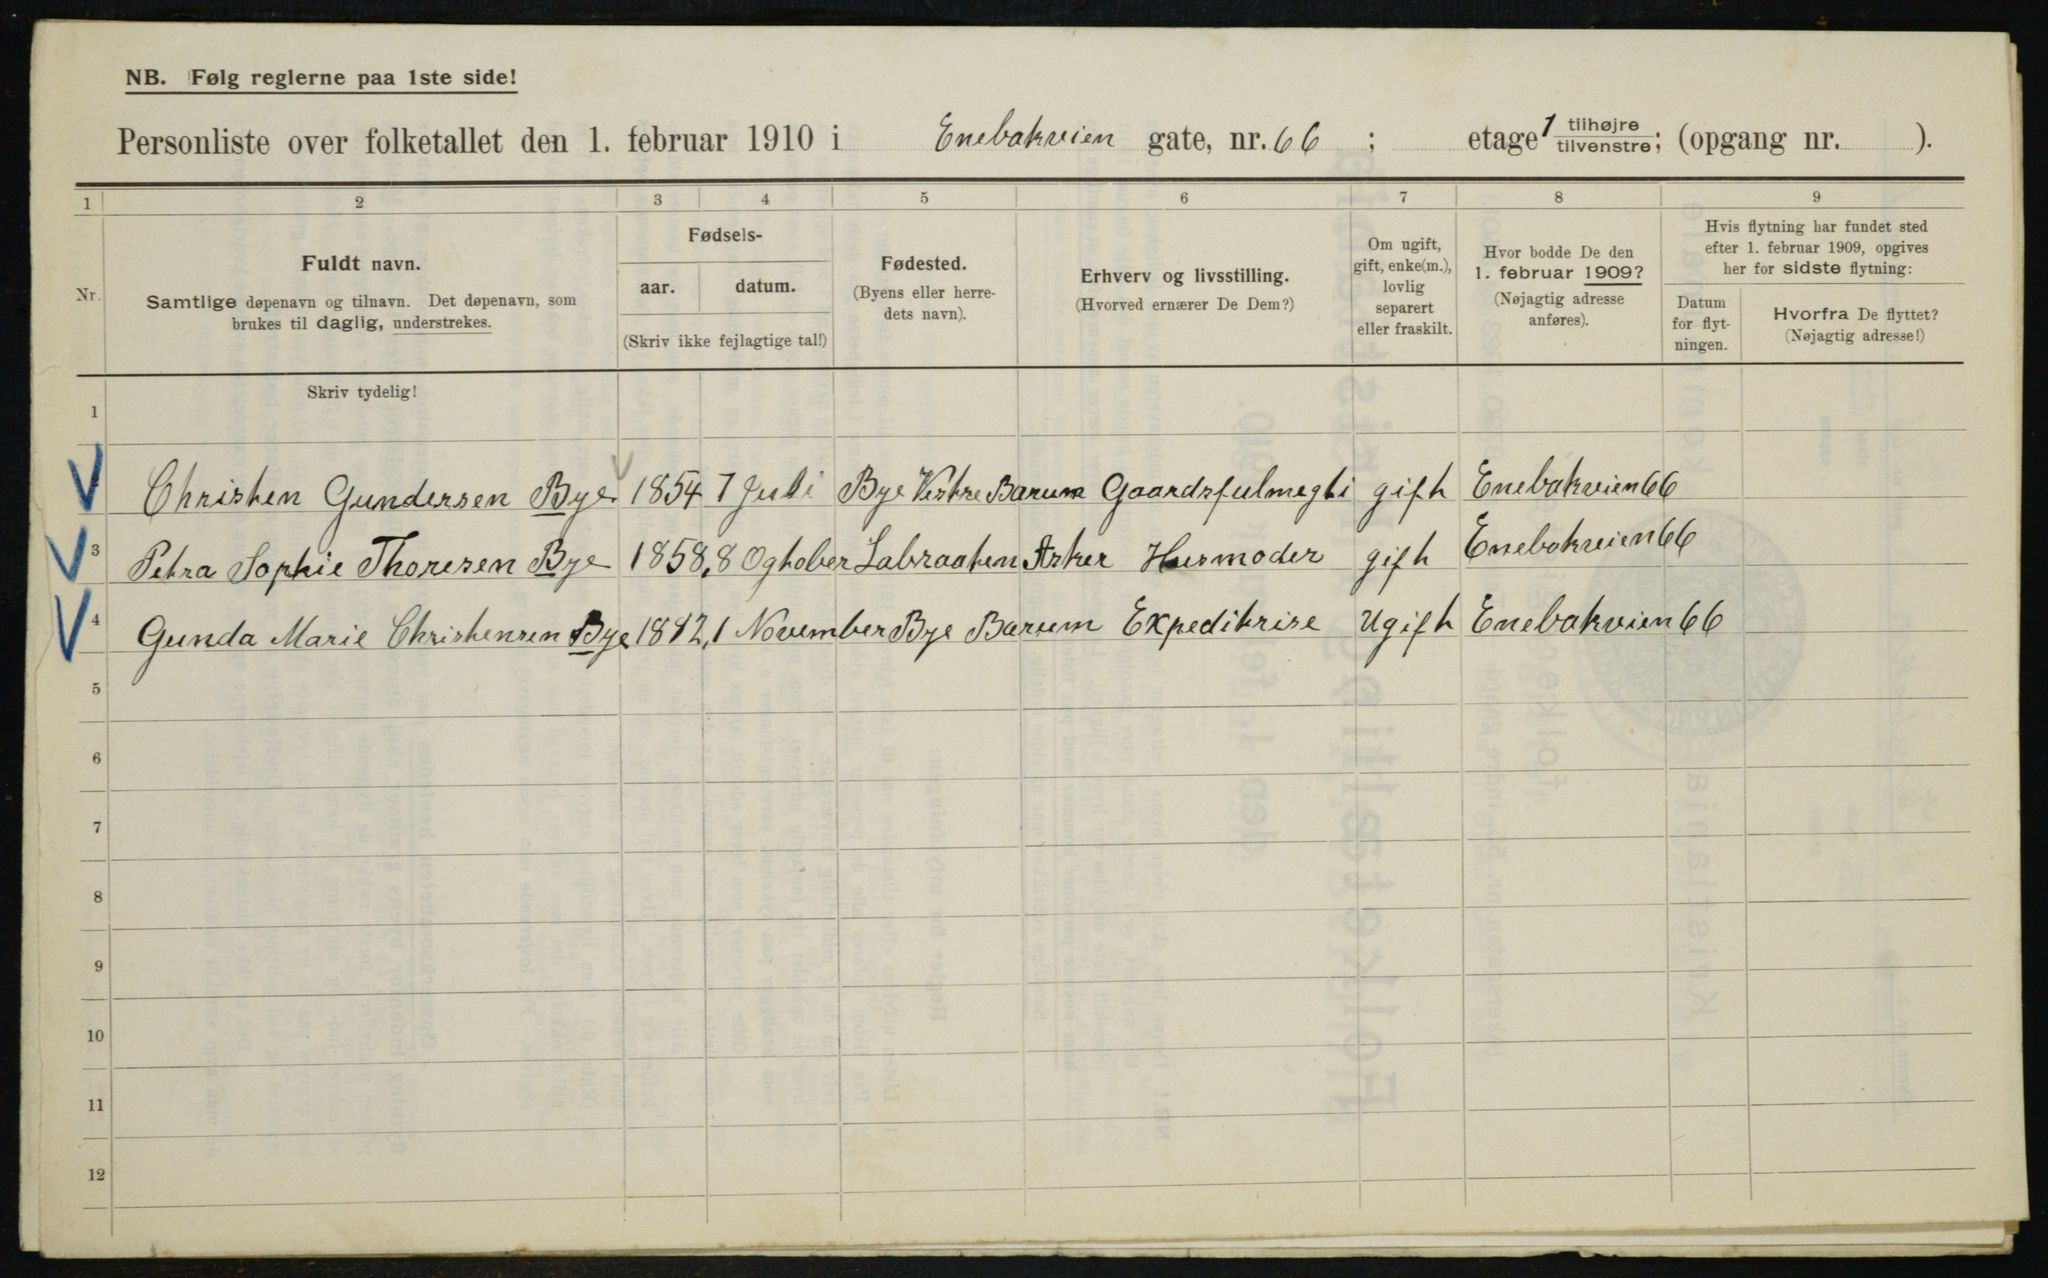 NB. Følg reglerne paa 1ste side!
Personliste over folketallet den 1. februar 1910 i Enebakveien gate, nr. 66 ; etage 1 tilhøjre tilvenstre; (opgang nr. ).
1 2 3 4 5 6 7 8 9
Nr.
Fuldt navn.
Samtlige døpenavn og tilnavn. Det døpenavn, som
brukes til daglig, understrekes.
Fødsels-
aar. datum.
(Skriv ikke fejlagtige tal!)
Fødested.
(Byens eller herre-
dets navn).
Erhverv og livsstilling.
(Hvorved ernærer De Dem?)
Om ugift,
gift, enke(m.),
lovlig
separert
eller fraskilt.
Hvor bodde De den
1. februar 1909?
(Nøjagtig adresse
anføres).
Hvis flytning har fundet sted
efter 1. februar 1909, opgives
her for sidste flytning:
Datum
for flyt-
ningen.
Hvorfra De flyttet?
(Nøjagtig adresse!)
Skriv tydelig!
1
Christen Gundersen Bye 1854 7 Juli Bye Vestre Barum Gaardsfulmegti gift Enebakveien 66
3 Petra Sophie Thoresen Bye 1858, 8 Ogtober Labraaten Asker Husmoder gift Enebakveien 66
4 Gunda Marie Christensen Bye 1892, 1 November Bye Barum Expeditrise Ugift Enebakveien 66
5
6
7
8
9
10
11
12